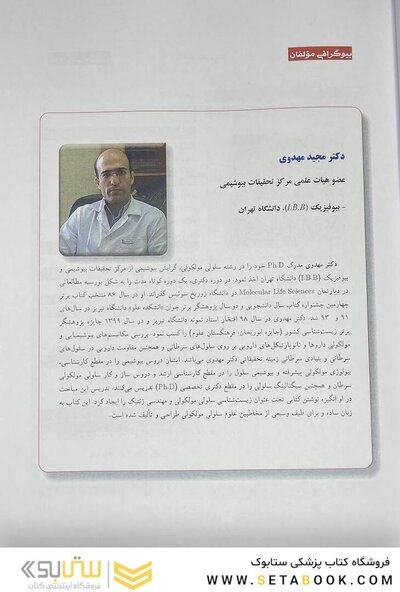 بیوگرافی مؤلفان
دکتر مجید مهدوی
عضو هیات علمی مرکز تحقیقات بیوشیمی
- بیوفیزیک (I.B.B)، دانشگاه تهران
دکتر مهدوی مدرک Ph.D خود را در رشته سلولی مولکولی، گرایش بیوشیمی از مرکز تحقیقات بیوشیمی و
بیوفیزیک (I.B.B) دانشگاه تهران اخذ نمود. در دوره دکتری، یک دوره کوتاه مدت را به شکل بورسیه مطالعاتی
در دپارتمان Molecular Life Sciences در دانشگاه زوریخ سوئیس گذراند. او در سال ۸۶ منتخب کتاب برتر
چهارمین جشنواره کتاب سال دانشجویی و دو سال پژوهشگر برتر جوان دانشکده علوم دانشگاه تبریز در سال‌های
۹۱ و ۹۳ شد. دکتر مهدوی در سال ۹۸ افتخار استاد نمونه دانشگاه تبریز و در سال ۱۳۹۹ جایزه پژوهشگر
برتر زیست‌شناسی کشور (جایزه ابوریحان، فرهنگستان علوم) را کسب نمود. بررسی مکانیسم‌های بیوشیمیایی و
مولکولی داروها و نانوپارتیکل‌های دارویی بر روی سلول‌های سرطانی و همچنین مقاومت دارویی در سلول‌های
سرطانی و بنیادی سرطانی زمینه تحقیقاتی دکتر مهدوی می‌باشد. ایشان دروس بیوشیمی را در مقطع کارشناسی،
بیولوژی مولکولی پیشرفته و بیوشیمی سلول را در مقطع کارشناسی ارشد و دروس ساز و کار سلولی مولکولی
سرطان و همچنین سیگنالینگ سلولی را در مقطع دکتری تخصصی (Ph.D) تدریس می‌کنند. تدریس این مباحث
در او انگیزه نوشتن کتابی تحت عنوان زیست‌شناسی سلولی مولکولی و مهندسی ژنتیک را ایجاد کرد. این کتاب به
زبان ساده و برای طیف وسیعی از مخاطبین علوم سلولی مولکولی طراحی و تألیف شده است.
فروشگاه کتاب پزشکی ستابوک
WWW.SETABOOK.COM
ستابوک
فروشگاه اینترنتی کتاب